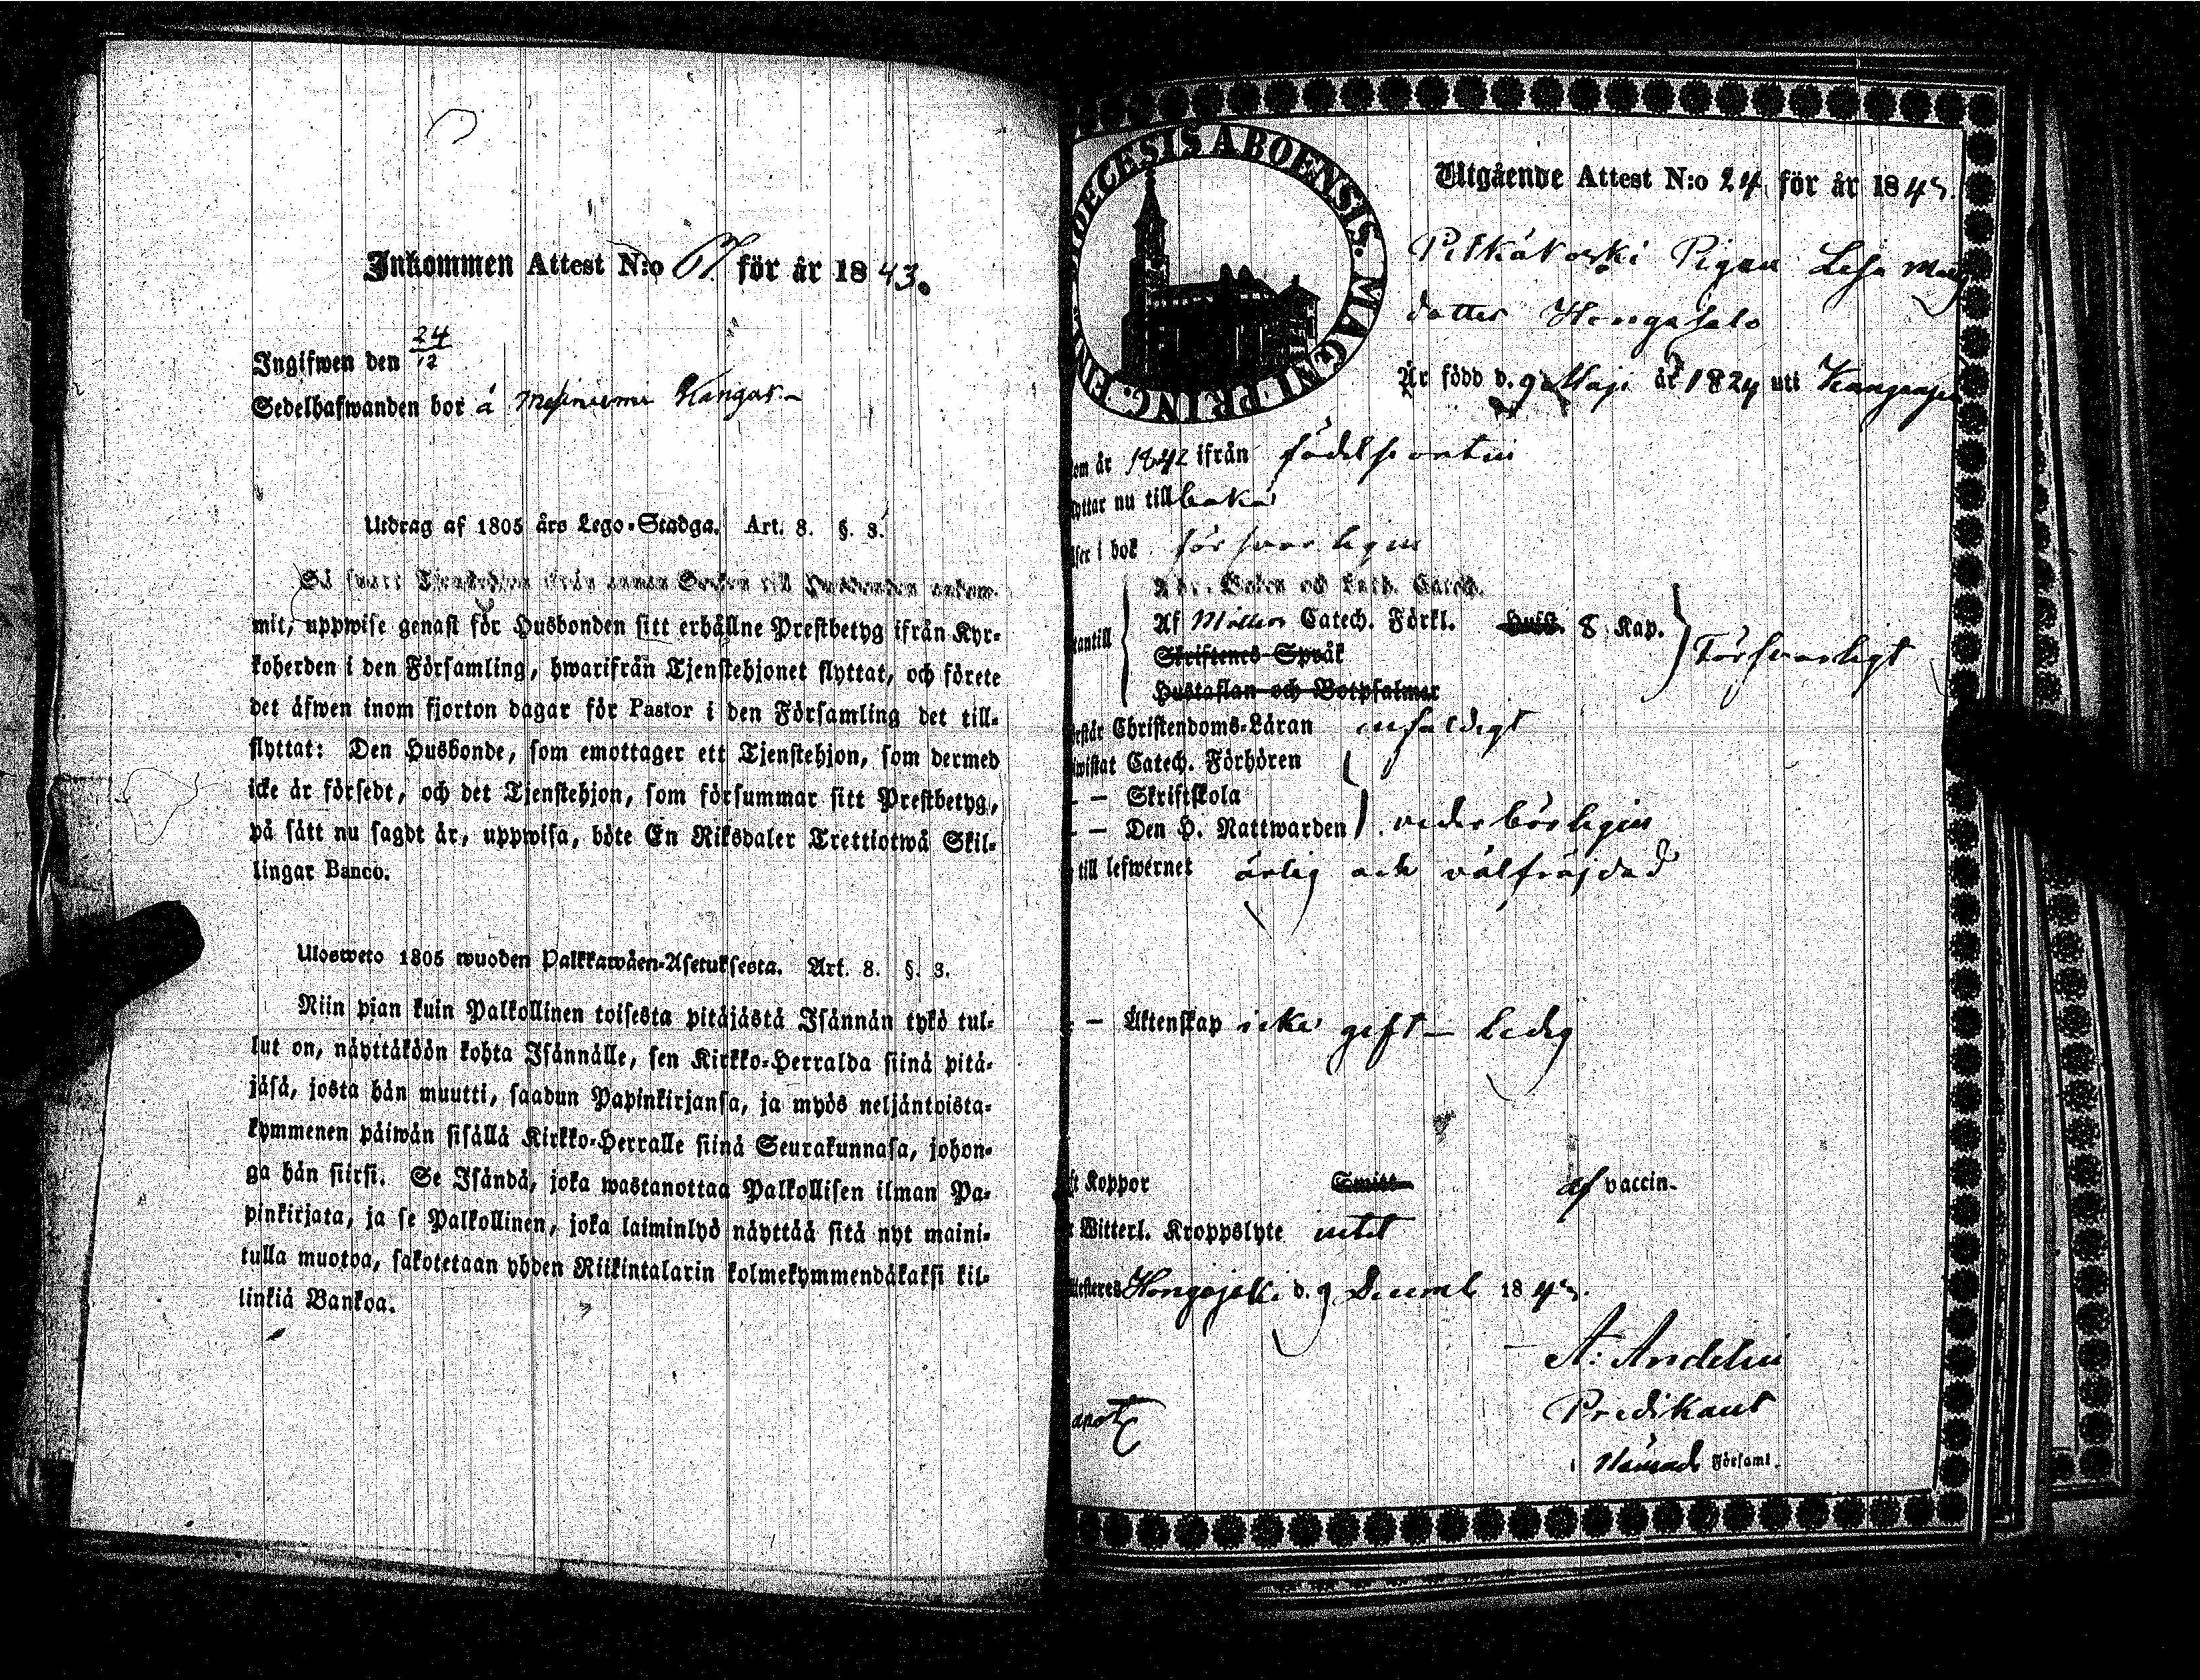 Inkommen Attest N:o 67 för år 1843.
Ingifwen den 24/12
Sedelhafwanden bor å Kangas
Utdrag af 1805 års Lego-Stadga. Art. 8. §. 3.
Så snart Tjenstehjon ifrån annan Socken till Husbonden ankom-
mit, uppwise genast för Husbonden sitt erhållne Prestbetyg ifrån Kyr-
koherden i den Församling, hwarifrån Tjenstehjonet flyttat, och förete
det äfwen inom fjorton dagar för Pastor i den Församling det till-
flyttat: Den Husbonde, som emottager ett Tjenstehjon, som dermed
icke är försedt, och det Tjenstehjon, som försummar sitt Prestbetyg,
på sätt nu sagdt är, uppwisa, böte En Riksdaler Trettiotwå Skil-
lingar Banco.
Ulosweto 1805 wuoden Palkkawäen-Asetuksesta. Art. 8. §. 3.
Niin pian kuin Palkollinen toisesta pitäjästä Isännän tykö tul-
lut on, näyttäköön kohta Isännälle, sen Kirkko-Herralda siinä pitä-
jäsä, josta hän muutti, saadun Papinkirjansa, ja myös neljäntoista-
kymmenen päiwän sisällä Kirkko-Herralle siinä Seurakunnasa, johon-
ga hän siirsi. Se Isändä, joka wastanottaa Palkollisen ilman Pa-
pinkirjata, ja se Palkollinen, joka laiminlyö näyttää sitä nyt maini-
tulla muotoa, sakotetaan yhden Riikintalarin kolmekymmendäkaksi kil-
linkiä Bankoa.
DIOECESIS ABOENSIS. MAGNI PRINC. FINL.
Utgående Attest N:o 24 för år 1843.
Pitkäkoski Pigan Lisa
dotter Hongasalo
Är född d. 9 Maji år 1824 uti
om år 1842 ifrån födelseorten
yttar nu tillbaka
ser i bok försvarligen
Abc-Boken och Luth. Catech.
antill Af Möllers Catech. Förkl. Husf. 8 Kap. Försvarligt
Skriftenes Språk
Hustaflan och Botpsalmer
rstår Christendoms-Läran enfaldigt
wistat Catech. Förhören
— Skriftskola
— Den H. Nattwarden vederbörligen
till lefwernet ärlig och välfräjdad
— Äktenskap icke gift – Ledig
ft Koppor Smitt af vaccin.
r Witterl. Kroppslyte intet
testeres Hongojoki d. 9 Decemb 1843.
A: Andelin
Predikant
i Församl.